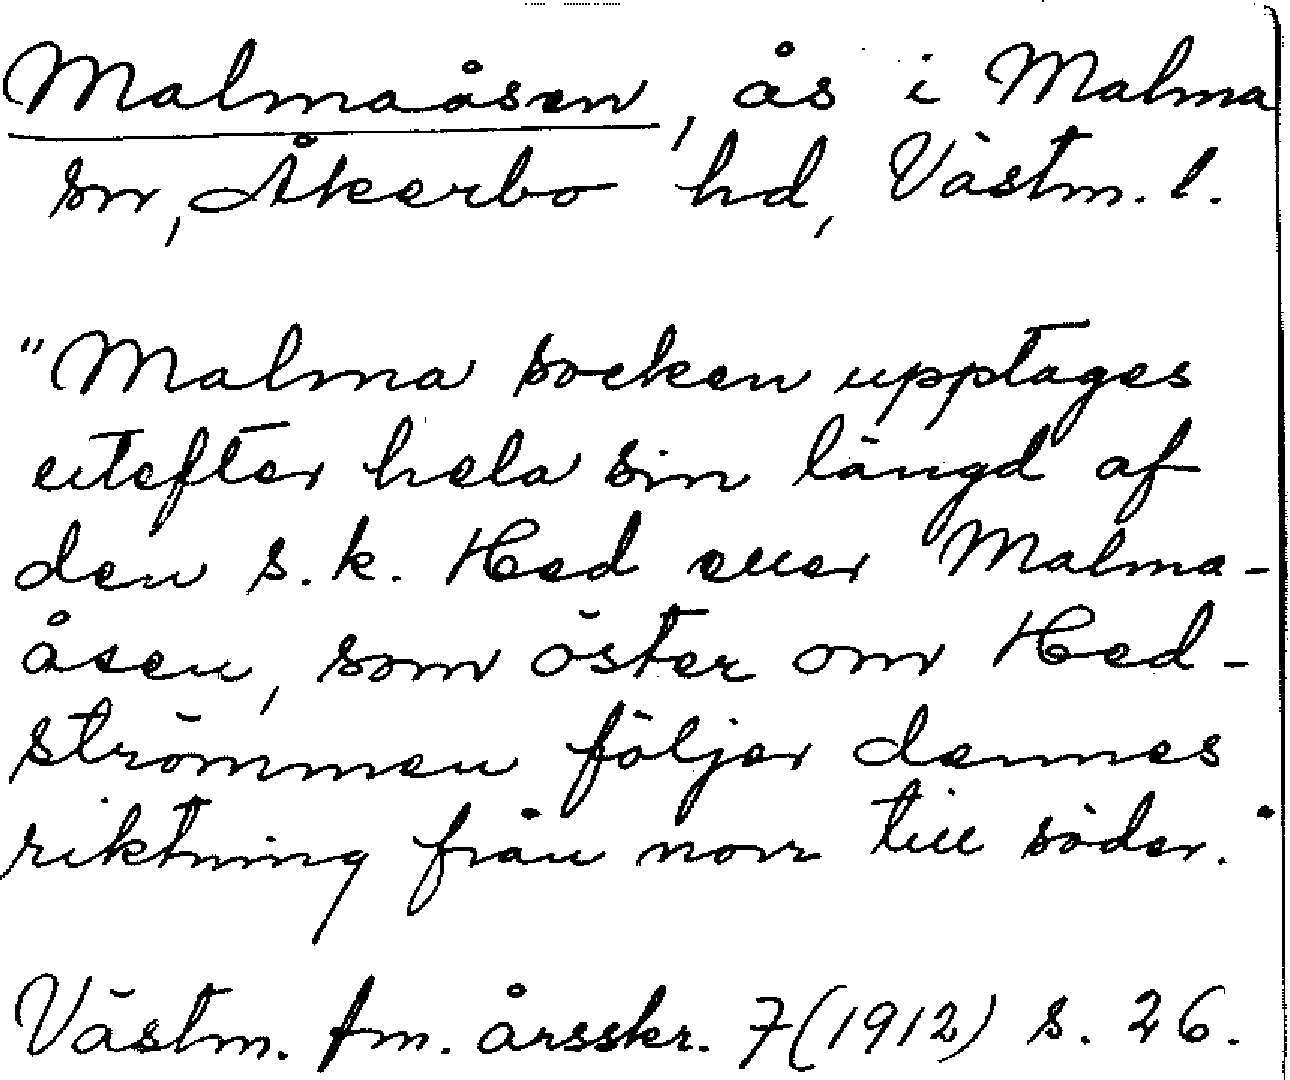 Malmaåsen, ås i Malma
sn, Åkerbo hd, Västm. l.
"Malma socken upptages
utefter hela sin längd af
den s.k. Hed eller Malma-
åsen, som öster om Hed-
strömmen följer dennes
riktning från norr till söder."
Västm. fm. årsskr. 7(1912) s. 26.